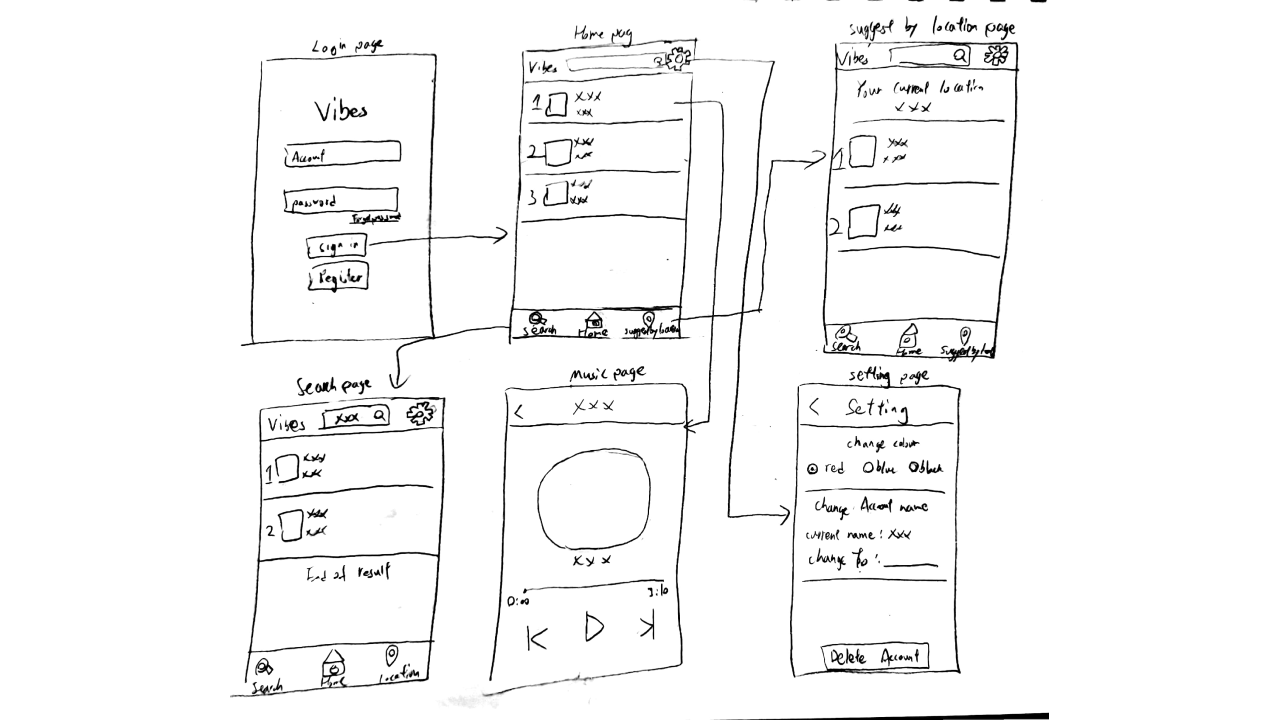 Login page
Vibes
Account
password
Forgot password
Sign in
Register
Home pag
Vibes
1 xxx
xxx
2 xxx
xxx
3 xxx
xxx
Search Home
suggest by location page
Vibes
Your current location
xxx
1 xxx
xxx
2 xxx
xxx
Search Home
Search page
Vibes xxx
1 xxx
xxx
2 xxx
xxx
End of result
Search Home Location
Music page
< xxx
xxx
0:00 3:10
setting page
< Setting
change colour
red blue black
change Account name
current name: xxx
change to:
Delete Account